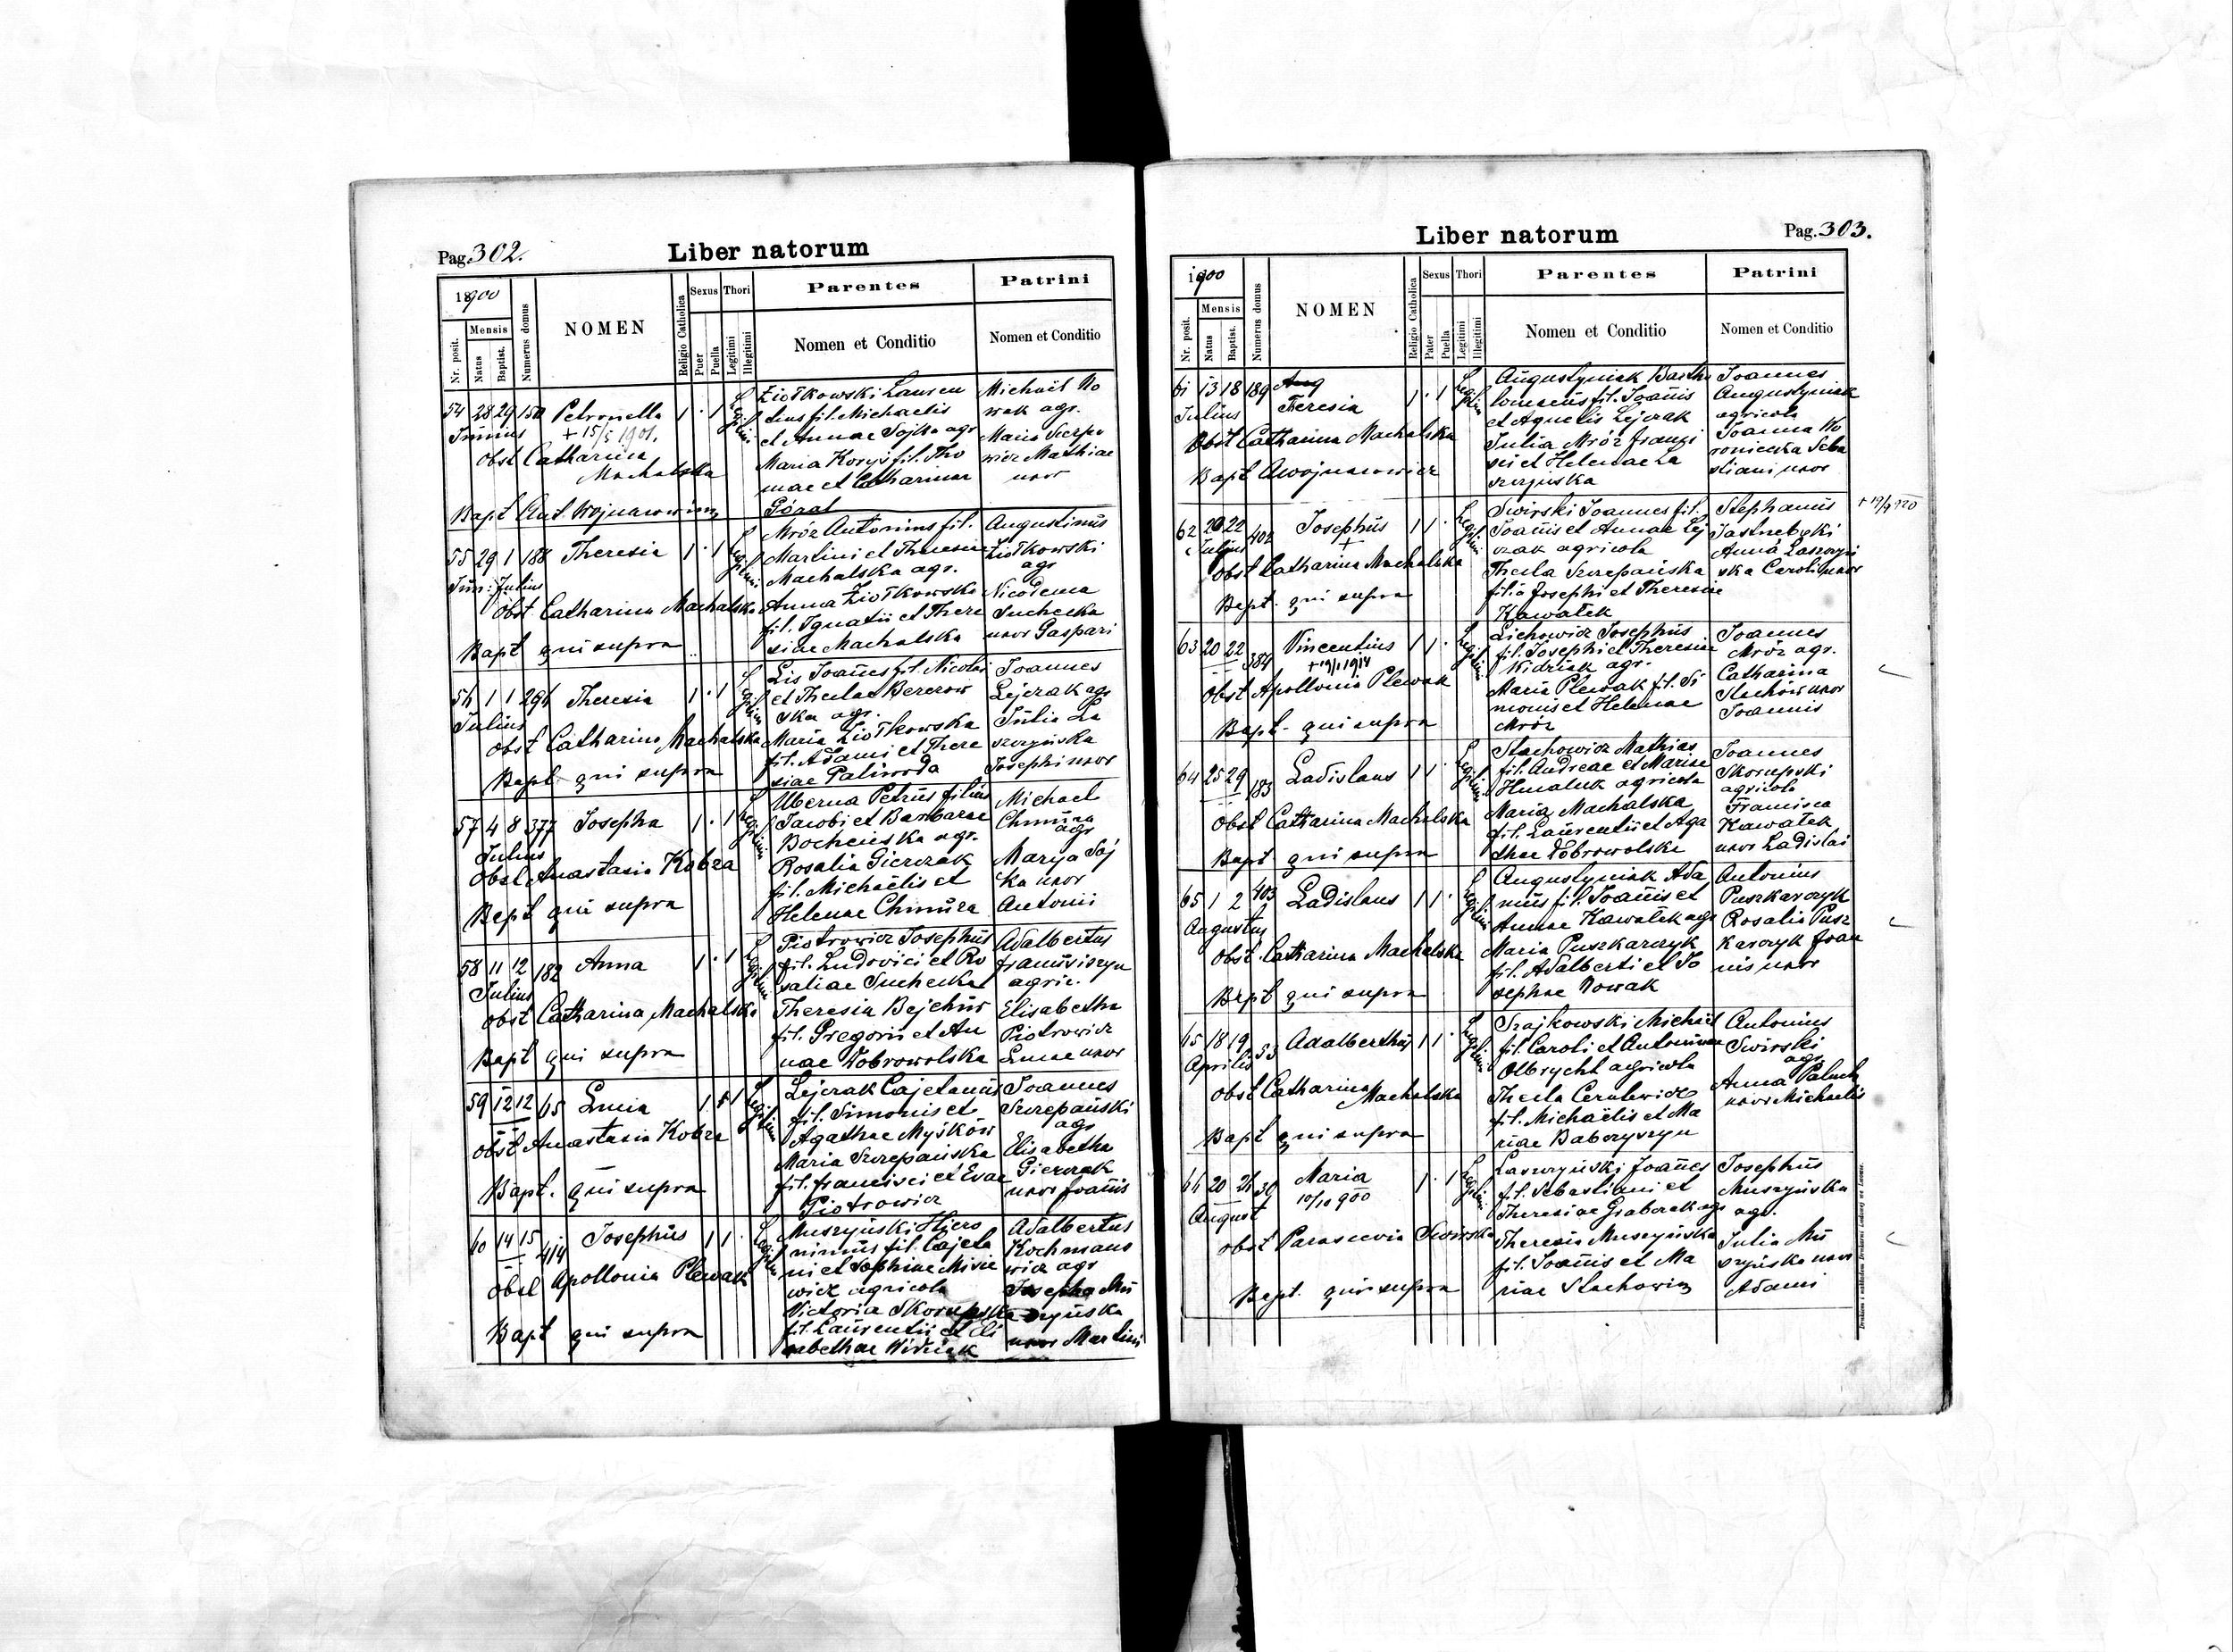 Pag. 302.
Liber natorum
1900
Mensis
Nr. posit.
Natus
Baptist.
Numerus domus
NOMEN
Religio Catholica
Sexus
Puer
Puella
Thori
Legitimi
Illegitimi
Parentes
Nomen et Conditio
Patrini
Nomen et Conditio
54 28 29 150 Petronella 1 · 1
Junius + 15/5 1901.
Obst Catharina
Machalska
Bapt Ant. Wojnarowicz
Ziołkowski Lauren
tius fil. Michaelis
et Annae Sojka agr
Maria Koryś fil. Tho
mae et Catharinae
Góral
Michaël No
wak agr.
Maria Szerpo
wicz Mathiae
uxor
55 29 1 188 Theresia 1 · 1
Jun: Julius
Obst Catharina Machalska
Bapt qui supra
Mróz Antonius fil.
Martini et Theresiae
Machalska agr.
Anna Ziołkowska
fil. Ignatii et There
siae Machalska
Augustinus
Ziołkowski
agr
Nicodema
Suchecka
uxor Gaspari
56 1 1 296 Theresia 1 · 1
Julius
Obst Catharina Machalska
Bapt qui supra
Lis Joannes fil. Nicolai
et Theclae Bererow
ska agr.
Maria Ziołkowska
fil. Adami et There
siae Paliwoda
Joannes
Lejczak agr
Julia La
szczyńska
Josephi uxor
57 4 8 377 Josepha 1 · 1
Julius
Obst Anastasia Kobza
Bapt qui supra
Uberna Petrus filius
Jacobi et Barbarae
Bocheńska agr.
Rosalia Gierczak
fil. Michaëlis et
Helenae Chmura
Michael
Chmura
agr
Marya Soj
ka uxor
Antonii
58 11 12 182 Anna 1 · 1
Julius
Obst Catharina Machalska
Bapt qui supra
Piotrowicz Josephus
fil. Ludovici et Ro
saliae Suchecka
Theresia Bejchiw
fil. Gregorii et An
nae Dobrowolska
Adalbertus
agric.
Elisabetha
Piotrowicz
uxor
59 12 12 65 Lucia 1 · 1
Obst Anastasia Kobza
Bapt. qui supra
Lejczak Cajetanus
fil. Simonis et
Agathae Myśków
Maria Szczepańska
fil. Francisci et Evae
Piotrowicz
Joannes
Szczepański
agr
Elisabetha
Gierczak
uxor Joannis
60 14 15 414 Josephus 1 1 ·
Obst Apollonia Plewak
Bapt qui supra
Muszyński Hiero
nimus fil. Cajeta
ni et Sophiae Misie
wicz agricola
Victoria Skorupska
fil. Laurentii et Eli
sabethae Widziak
Adalbertus
Kochmano
wicz agr
Josepha Mu
szyńska
uxor Martini
Liber natorum
Pag. 303.
1900
Mensis
Nr. posit.
Natus
Baptist.
Numerus domus
NOMEN
Religio Catholica
Sexus
Pater
Puella
Thori
Legitimi
Illegitimi
Parentes
Nomen et Conditio
Patrini
Nomen et Conditio
61 13 18 189 Aug
Julius Theresia 1 · 1
Obst Catharina Machalska
Bapt AWojnarowicz
Augustyniak Bartho
lomaeus fil. Joannis
et Agnetis Lejczak
Julia Mróz Franci
sci et Helenae La
szczyńska
Joannes
Augustyniak
agricola
Joanna Wo
roniecka Seba
stiani uxor
62 20 22 402 Josephus 1 1 ·
Julius +
Obst Catharina Machalska
Bapt. qui supra
Swirski Joannes fil.
Joannis et Annae Lej
czak agricola
Thecla Szczepańska
filia Josephi et Theresiae
Kawałek
Stephanus
Jastrzębski
Anna Laszczyń
ska Caroli uxor
+ 19/9 920
63 20 22 384 Vincentius 1 1 ·
+ 19/1 1914
Obst Apollonia Plewak
Bapt. qui supra
Lichowicz Josephus
fil. Josephi et Theresiae
Widziak agr.
Maria Plewak fil. Si
monis et Helenae
Mróz
Joannes
Mróz agr.
Catharina
Stachów uxor
Joannis
64 25 29 183 Ladislaus 1 1 ·
Obst Catharina Machalska
Bapt qui supra
Stachowicz Mathias
fil. Andreae et Mariae
Hnatuk agricola
Maria Machalska
fil. Laurentii et Aga
thae Dobrowolska
Joannes
Skorupski
agricola
Francisca
Kawałek
uxor Ladislai
65 1 2 403 Ladislaus 1 1 ·
Augustus
Obst. Catharina Machalska
Bapt qui supra
Augustyniak Ada
mus fil. Joannis et
Annae Kawałek agr
Maria Puszkarczyk
fil. Adalberti et Jo
sephae Nowak
Antonius
Puszkarczyk
Rosalia Pusz
karczyk Joan
nis uxor
65 18 19 53 Adalberthus 1 1 ·
Aprilis
Obst Catharina Machalska
Bapt qui supra
Szajkowski Michaël
fil. Caroli et Antoninae
Olbrycht agricola
Thecla Cerulewicz
fil. Michaëlis et Ma
riae Babczyszyn
Antonius
Swirski
agr
Anna Paluch
uxor Michaelis
66 20 26 30 Maria 1 · 1
August 10/10 900
Obst Parascevia Swirska
Bapt. qui supra
Laszczyński Joannes
fil. Sebastiani et
Theresiae Graboczak agr
Theresia Muszyńska
fil. Joannis et Ma
riae Stachowicz
Josephus
Muszyńska
agr.
Julia Mu
szyńska uxor
Adami